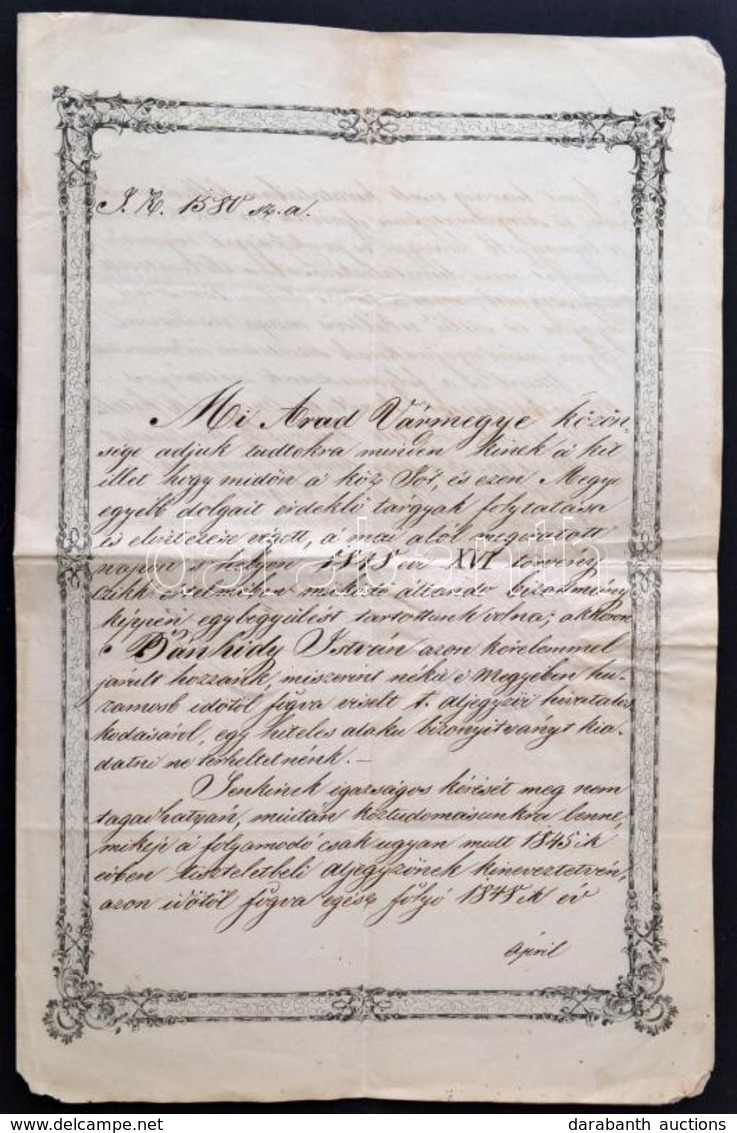 J. K. 1580 sz.a.
Mi Arad Vármegye közön-
sége adjuk tudtokra minden kinek a kit
illet hogy midőn a köz Jót, és ezen Megye
egyébb dolgait érdeklő tárgyak folytatása
és elvégzése végett, a mai alól megírt
napon s helyen 1848 év XVI törvény
czikk értelmében működő állandó bizonmány
képpen egybegyülést tartottunk volna; akkoron
Bánhidy István azon kérelemmel
járult hozzánk, miszerint néki e Megyében hu-
zamosb időtől fogva viselt t. aljegyzői hivatalos
kodásáról, egy hiteles alaku bizonyitványt kia-
datni ne terheltetnénk. —
Senkinek igazságos kérését meg nem
tagadhatván, miután köztudomásunkra lenne,
mikép a folyamodó csak ugyan mult 1845 ik
évben tiszteletbeli aljegyzőnek kineveztetvén,
azon időtől fogva egész folyó 1848 ik év
April
darabanth
darabanth auctions